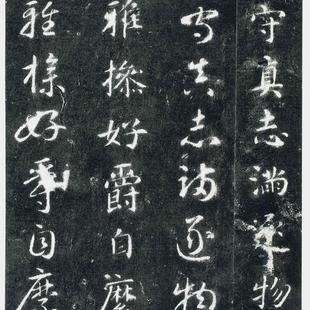 守真志滿逐物
守真志滿逐物
雅操好爵自縻
雅操好爵自縻